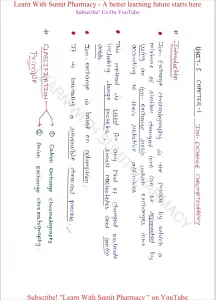 Learn With Sumit Pharmacy - A better learning future starts here
Subscribe! Us On YouTube
UNIT-5 CHAPTER-1
ION-EXCHANGE CHROMATOGRAPHY
* Introduction
• Ion-Exchange chromatography is the process by which a
mixture of similar charged ions can be separated by
using an ion exchange resin which exchanges ions
according to their relative affinities.
• This method is used for any kind of charged molecule
including large proteins, small nucleotides and amino
acids.
• Ion-exchange is based on adsorption
• It is basically a reversible chemical process.
* CLASSIFICATION
① Cation exchange chromatography
② Anion exchange chromatography
Principle
LEARN WITH SUMIT PHARMACY
Subscribe! "Learn With Sumit Pharmacy " on YouTube